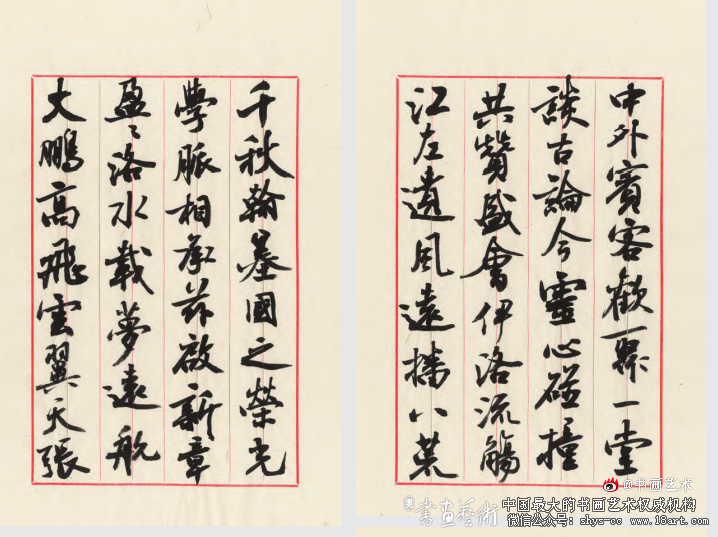 中外賓客歡聚一堂
談古論今靈心碰撞
共贊盛會伊洛流觴
江左遺風遠播八荒
千秋翰墨國之榮光
學脈相承茲啟新章
盈〻洛水載夢遠航
大鵬高飛雲翼天張
@书画艺术
書畫藝術
中国最大的书画艺术权威机构
微信公众号：shys-cc www.18art.com